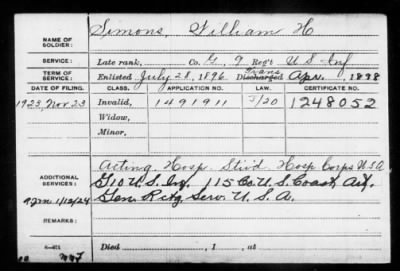 Simons, William H
NAME OF SOLDIER:
SERVICE: Late rank, Co. G, 9 Reg't U S Inf
TERM OF SERVICE: Enlisted July 28, 1896 Trans Discharged Apr. , 1898
DATE OF FILING. CLASS. APPLICATION NO. LAW. CERTIFICATE NO.
1923, Nov 23 Invalid, 1491911 J/20 1248052
Widow,
Minor,
Acting Hosp. Stw'd Hosp Corps U.S.A
ADDITIONAL SERVICES: G 10 U.S. Inf. 115 Co. U.S. Coast Art.
Gen. Rctg Serv. U.S.A.
1/12/24
REMARKS:
Died , 1 , at